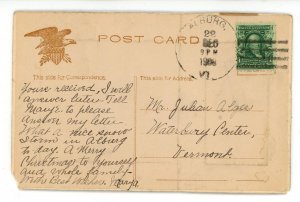 POST CARD
ALBURG,
28
DEC
1908
VT.
This side for Correspondence.
This side for Address.
Yours received, I will
answer letter. Tell
Mary to please
answer my letter
What a nice snow
storm in Alburg
to day. A Merry
Christmas to yourself
and whole family
With Best wishes,
Mr. Julian
Waterbury Center,
Vermont.